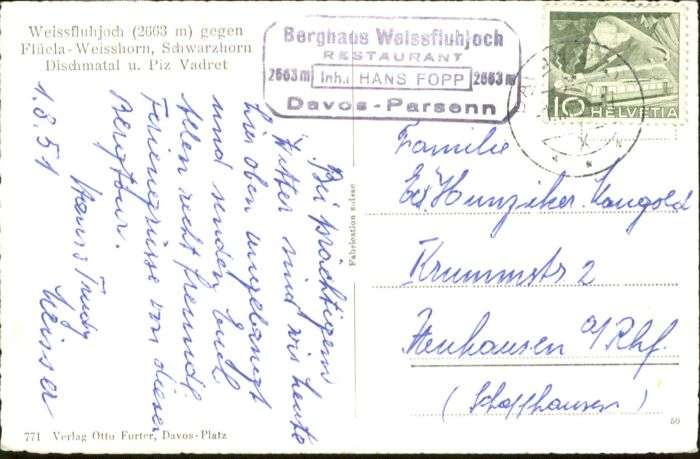 Weissfluhjoch (2663 m) gegen
Flüela-Weisshorn, Schwarzhorn
Dischmatal u. Piz Vadret
Berghaus Weissfluhjoch
RESTAURANT
2663 m Inh.: HANS FOPP 2663 m
Davos-Parsenn
10 HELVETIA
1.8.51
Bei prächtigem
Wetter sind wir heute
hier oben angelangt
und senden Euch
Allen recht freundl.
Feriengrüsse von dieser
Bergtour.
Hans & Trudy
Fabrication suisse
Familie
Ed. Hunziker-Mangold
Krummstr 2
Neuhausen a/Rhf.
(Schaffhausen)
771 Verlag Otto Furter, Davos-Platz
50